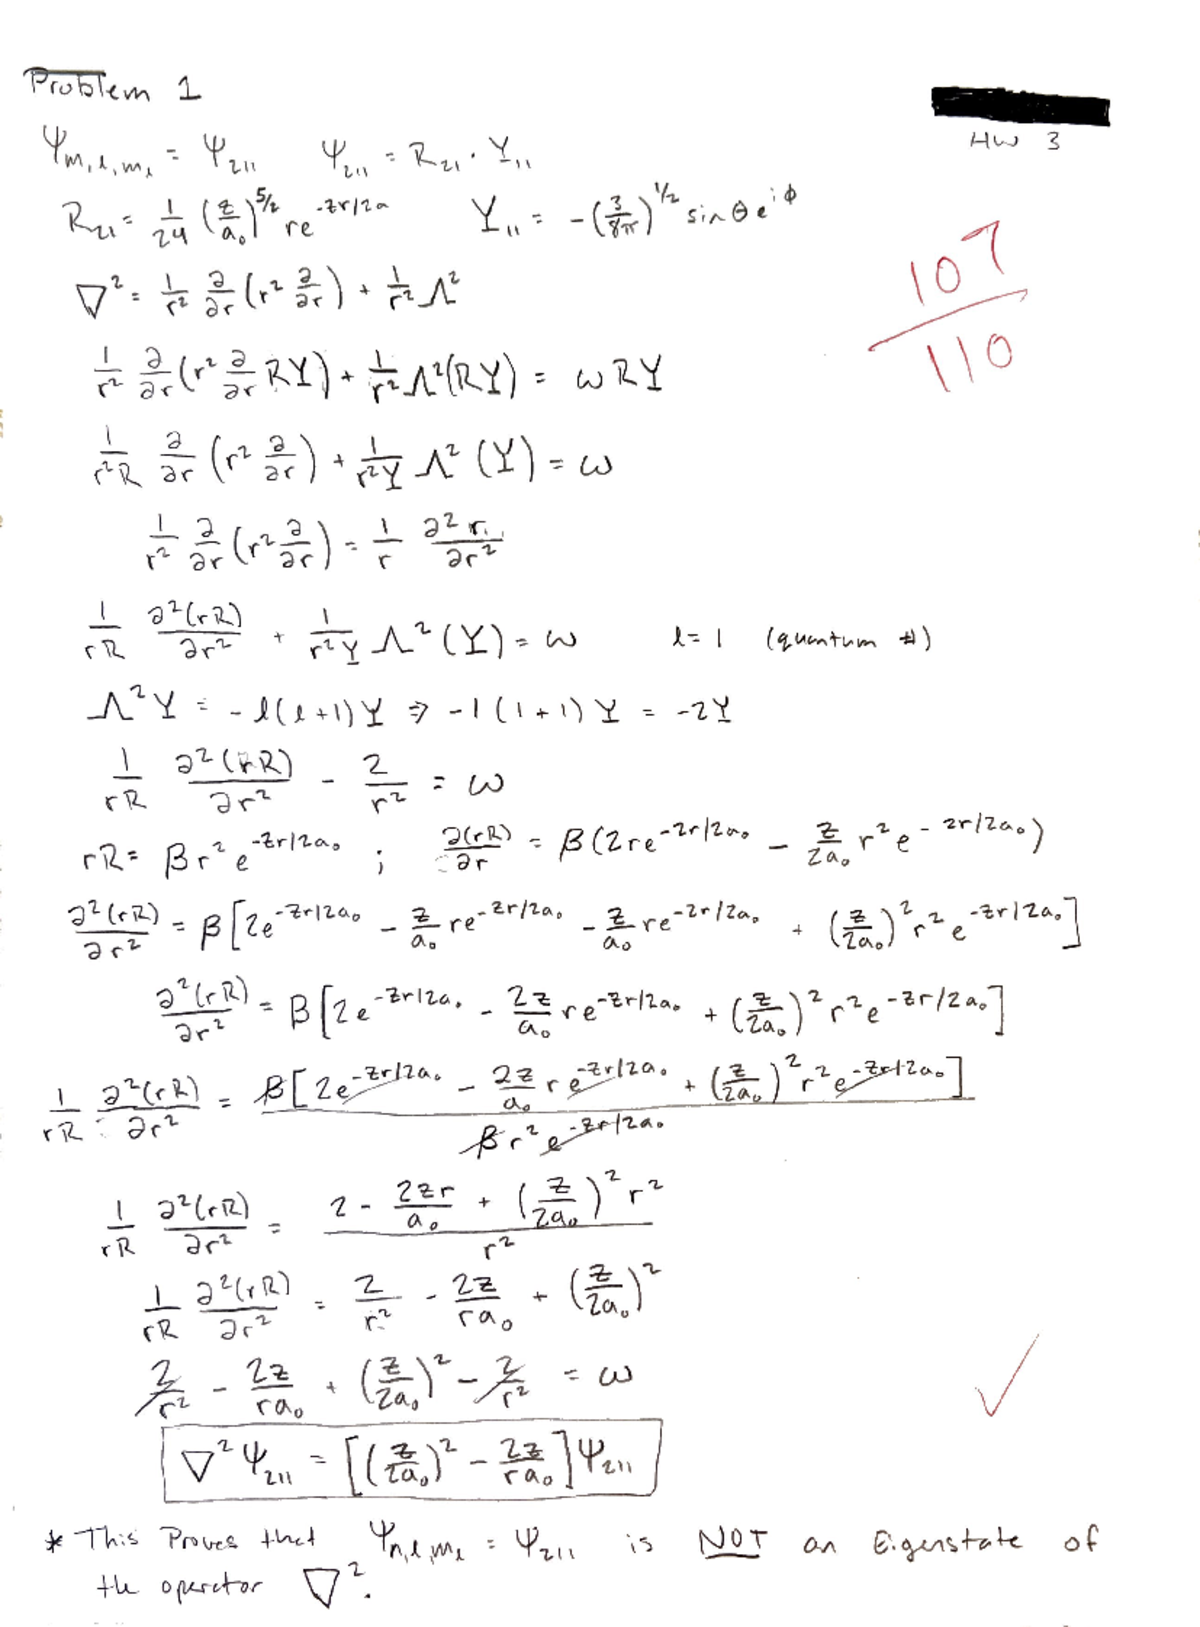 Problem 1
HW 3
Ψm,l,ml = Ψ211    Ψ211 = R21 · Y11
R21 = 1/24 (z/a0)^5/2 re^-zr/2a    Y11 = -(3/8π)^1/2 sinθe^iϕ
107/110
∇² = 1/r² ∂/∂r (r² ∂/∂r) + 1/r² Λ²
1/r² ∂/∂r (r² ∂/∂r RY) + 1/r² Λ²(RY) = ωRY
1/r²R ∂/∂r (r² ∂/∂r) + 1/r²Y Λ² (Y) = ω
1/r² ∂/∂r (r² ∂/∂r) = 1/r ∂²r/∂r²
1/rR ∂²(rR)/∂r² + 1/r²Y Λ² (Y) = ω    l = 1 (quantum #)
Λ²Y = -l(l+1)Y ⇒ -1(1+1)Y = -2Y
1/rR ∂²(rR)/∂r² - 2/r² = ω
rR = βr²e^-zr/2a0 ; ∂(rR)/∂r = β(2re^-zr/2a0 - z/2a0 r²e^-zr/2a0)
∂²(rR)/∂r² = β[2e^-zr/2a0 - z/a0 re^-zr/2a0 - z/a0 re^-zr/2a0 + (z/2a0)² r² e^-zr/2a0]
∂²(rR)/∂r² = β[2e^-zr/2a0 - 2z/a0 re^-zr/2a0 + (z/2a0)² r²e^-zr/2a0]
1/rR ∂²(rR)/∂r² = β[2e^-zr/2a0 - 2z/a0 re^-zr/2a0 + (z/2a0)² r²e^-zr/2a0] / βr²e^-zr/2a0
1/rR ∂²(rR)/∂r² = 2 - 2zr/a0 + (z/2a0)² r² / r²
1/rR ∂²(rR)/∂r² = 2/r² - 2z/ra0 + (z/2a0)²
2/r² - 2z/ra0 + (z/2a0)² - 2/r² = ω
∇²Ψ211 = [(z/2a0)² - 2z/ra0]Ψ211
* This Proves that Ψn,l,ml = Ψ211 is NOT an Eigenstate of
the operator ∇².